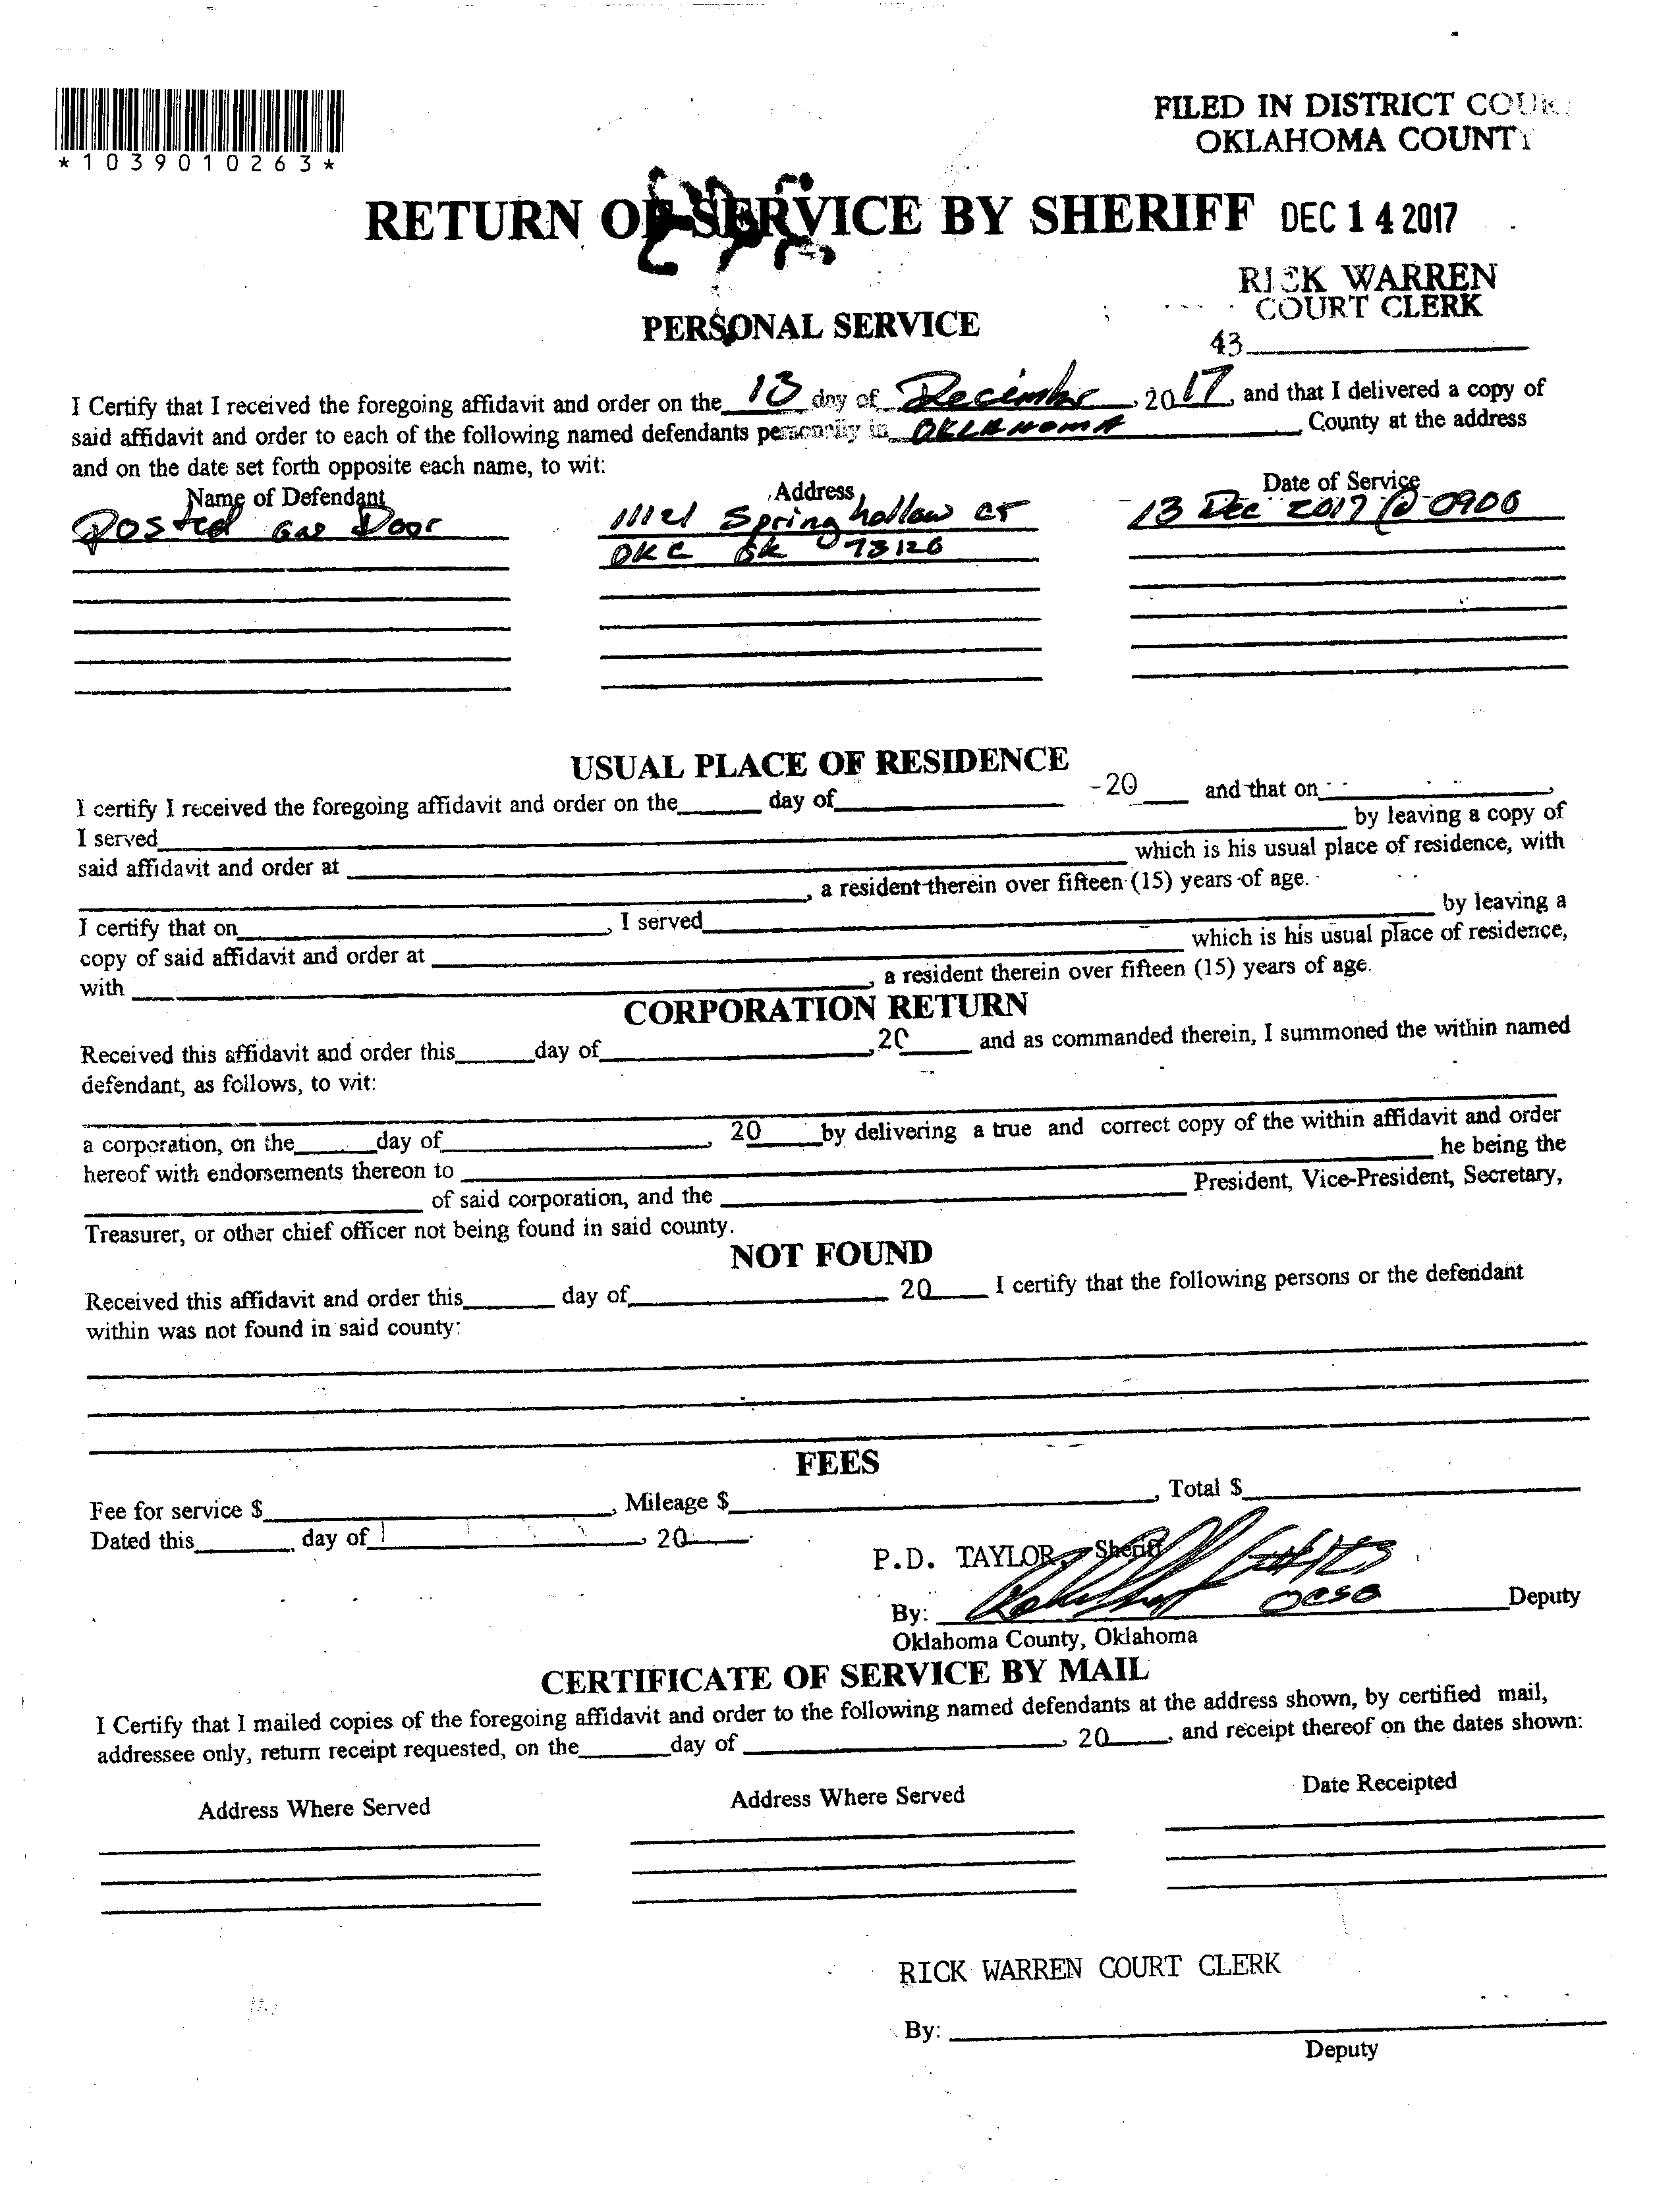 FILED IN DISTRICT COUR
OKLAHOMA COUNTY
*1039010263*
RETURN OF SERVICE BY SHERIFF DEC 14 2017
RICK WARREN
COURT CLERK
PERSONAL SERVICE
43
I Certify that I received the foregoing affidavit and order on the 13 day of December, 2017, and that I delivered a copy of
said affidavit and order to each of the following named defendants personally in OKLAHOMA County at the address
and on the date set forth opposite each name, to wit:
Name of Defendant Address Date of Service
Posted Door 11121 Springhollow CT 13 Dec 2017 @ 0900
OKC OK 73120
USUAL PLACE OF RESIDENCE
I certify I received the foregoing affidavit and order on the day of 20 and that on ,
I served by leaving a copy of
said affidavit and order at which is his usual place of residence, with
, a resident therein over fifteen (15) years of age.
I certify that on , I served by leaving a
copy of said affidavit and order at which is his usual place of residence,
with , a resident therein over fifteen (15) years of age.
CORPORATION RETURN
Received this affidavit and order this day of , 20 and as commanded therein, I summoned the within named
defendant, as follows, to wit:
a corporation, on the day of , 20 by delivering a true and correct copy of the within affidavit and order
hereof with endorsements thereon to he being the
of said corporation, and the President, Vice-President, Secretary,
Treasurer, or other chief officer not being found in said county.
NOT FOUND
Received this affidavit and order this day of 20 I certify that the following persons or the defendant
within was not found in said county:
FEES
Fee for service $ , Mileage $ , Total $
Dated this day of , 20 .
P.D. TAYLOR, Sheriff
By: OCSO Deputy
Oklahoma County, Oklahoma
CERTIFICATE OF SERVICE BY MAIL
I Certify that I mailed copies of the foregoing affidavit and order to the following named defendants at the address shown, by certified mail,
addressee only, return receipt requested, on the day of , 20 , and receipt thereof on the dates shown:
Address Where Served Address Where Served Date Receipted
RICK WARREN COURT CLERK
By:
Deputy